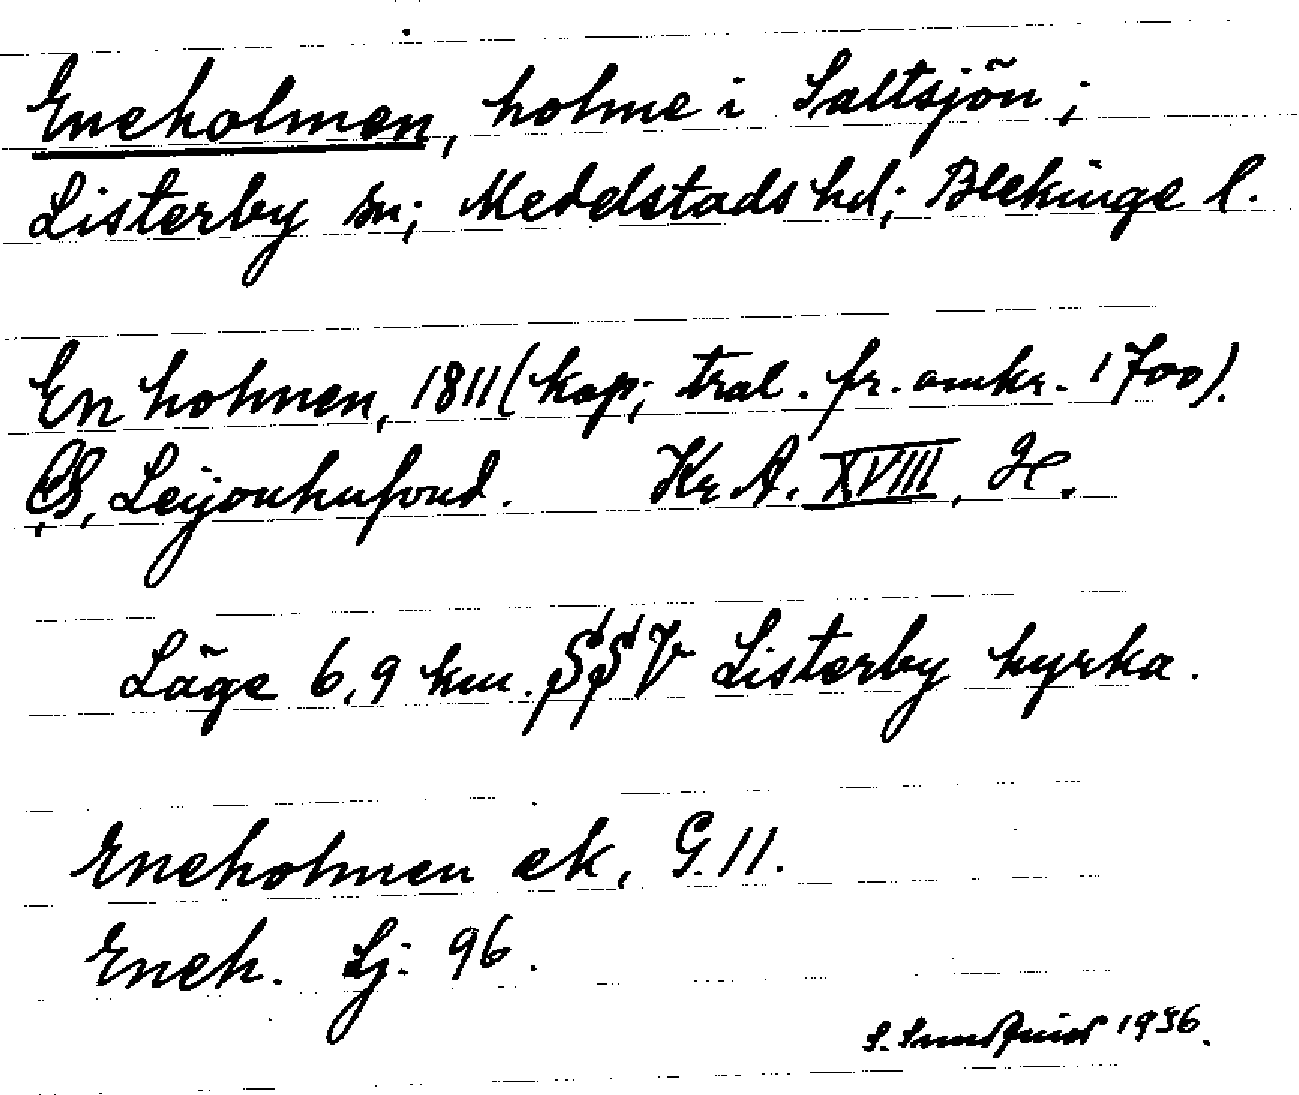 Eneholmen, holme i Saltsjön;
Listerby sn; Medelstads hd; Blekinge l.
En holmen, 1811 (kop; tral. fr. omkr. 1700).
CB, Leijonhufvud. Kr. A. XVIII, H.
Läge 6,9 km. SSV Listerby kyrka.
Eneholmen ek, G. 11.
Eneh. Lj: 96.
S. 1936.